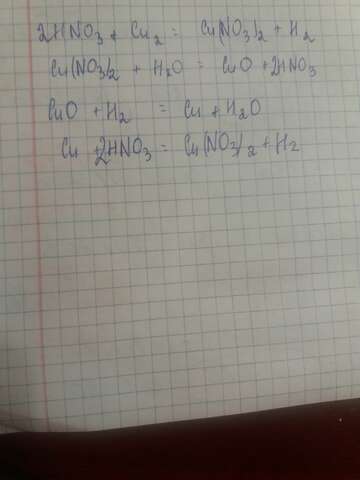 2HNO3 + Cu2 = Cu(NO3)2 + H2
Cu(NO3)2 + H2O = CuO + 2HNO3
CuO + H2 = Cu + H2O
Cu + 2HNO3 = Cu(NO3)2 + H2